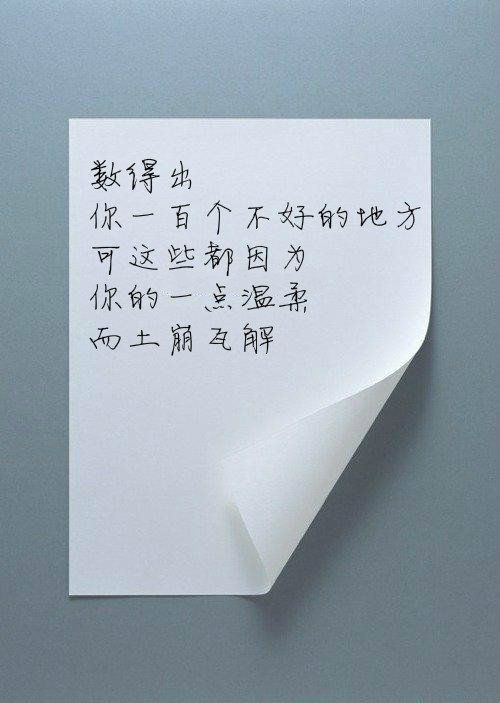 数得出
你一百个不好的地方
可这些都因为
你的一点温柔
而土崩瓦解